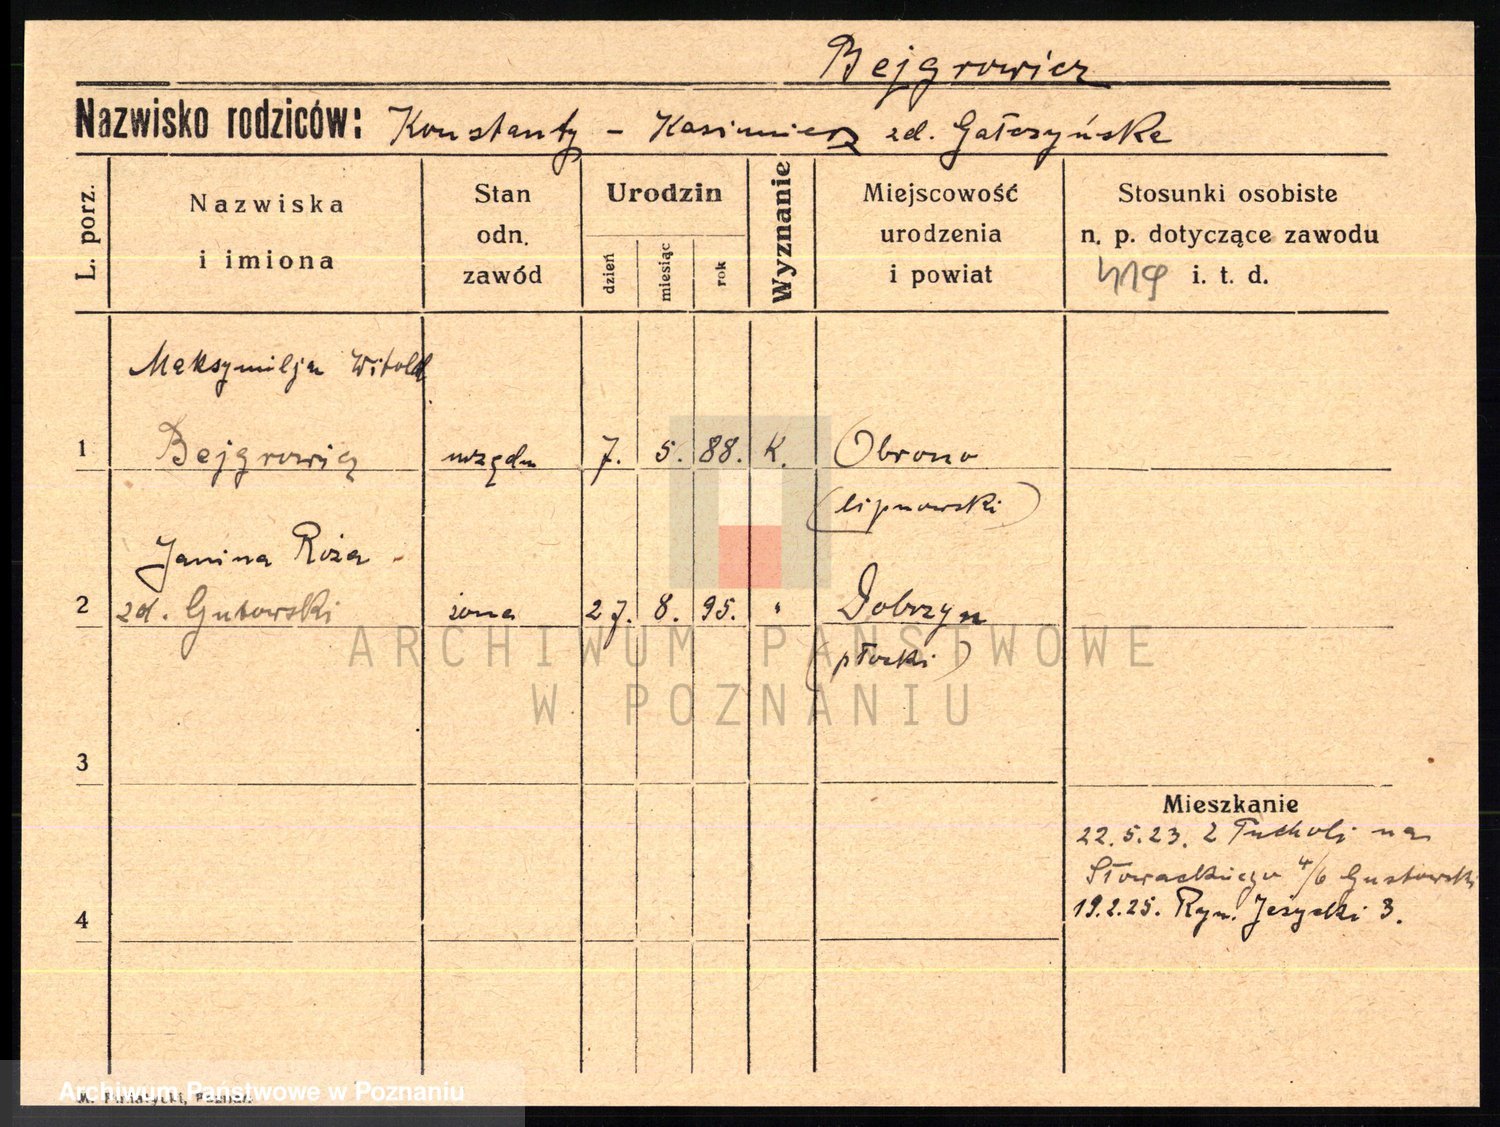 Bejgrowicz
Nazwisko rodziców: Konstanty - Kasimiera zd. Gałczyńska
L. porz.
Nazwiska
i imiona
Stan
odn.
zawód
Urodzin
dzień
miesiąc
rok
Wyznanie
Miejscowość
urodzenia
i powiat
Stosunki osobiste
n. p. dotyczące zawodu
i. t. d.
Maksymiljan Witold
1 Bejgrowicz urzędn 7. 5. 88. K. Obrono
(lipnowski)
Janina Roża -
2 zd. Gutowski żona 27. 8. 95. " Dobrzyn
(płocki)
ARCHIWUM PAŃSTWOWE
W POZNANIU
3
Mieszkanie
22.5.23. z Tucholi na
Słowackiego 4/6 Gustowski
4
19.2.25. Ryn. Jeżycki 3.
Archiwum Państwowe w Poznaniu
Poznań